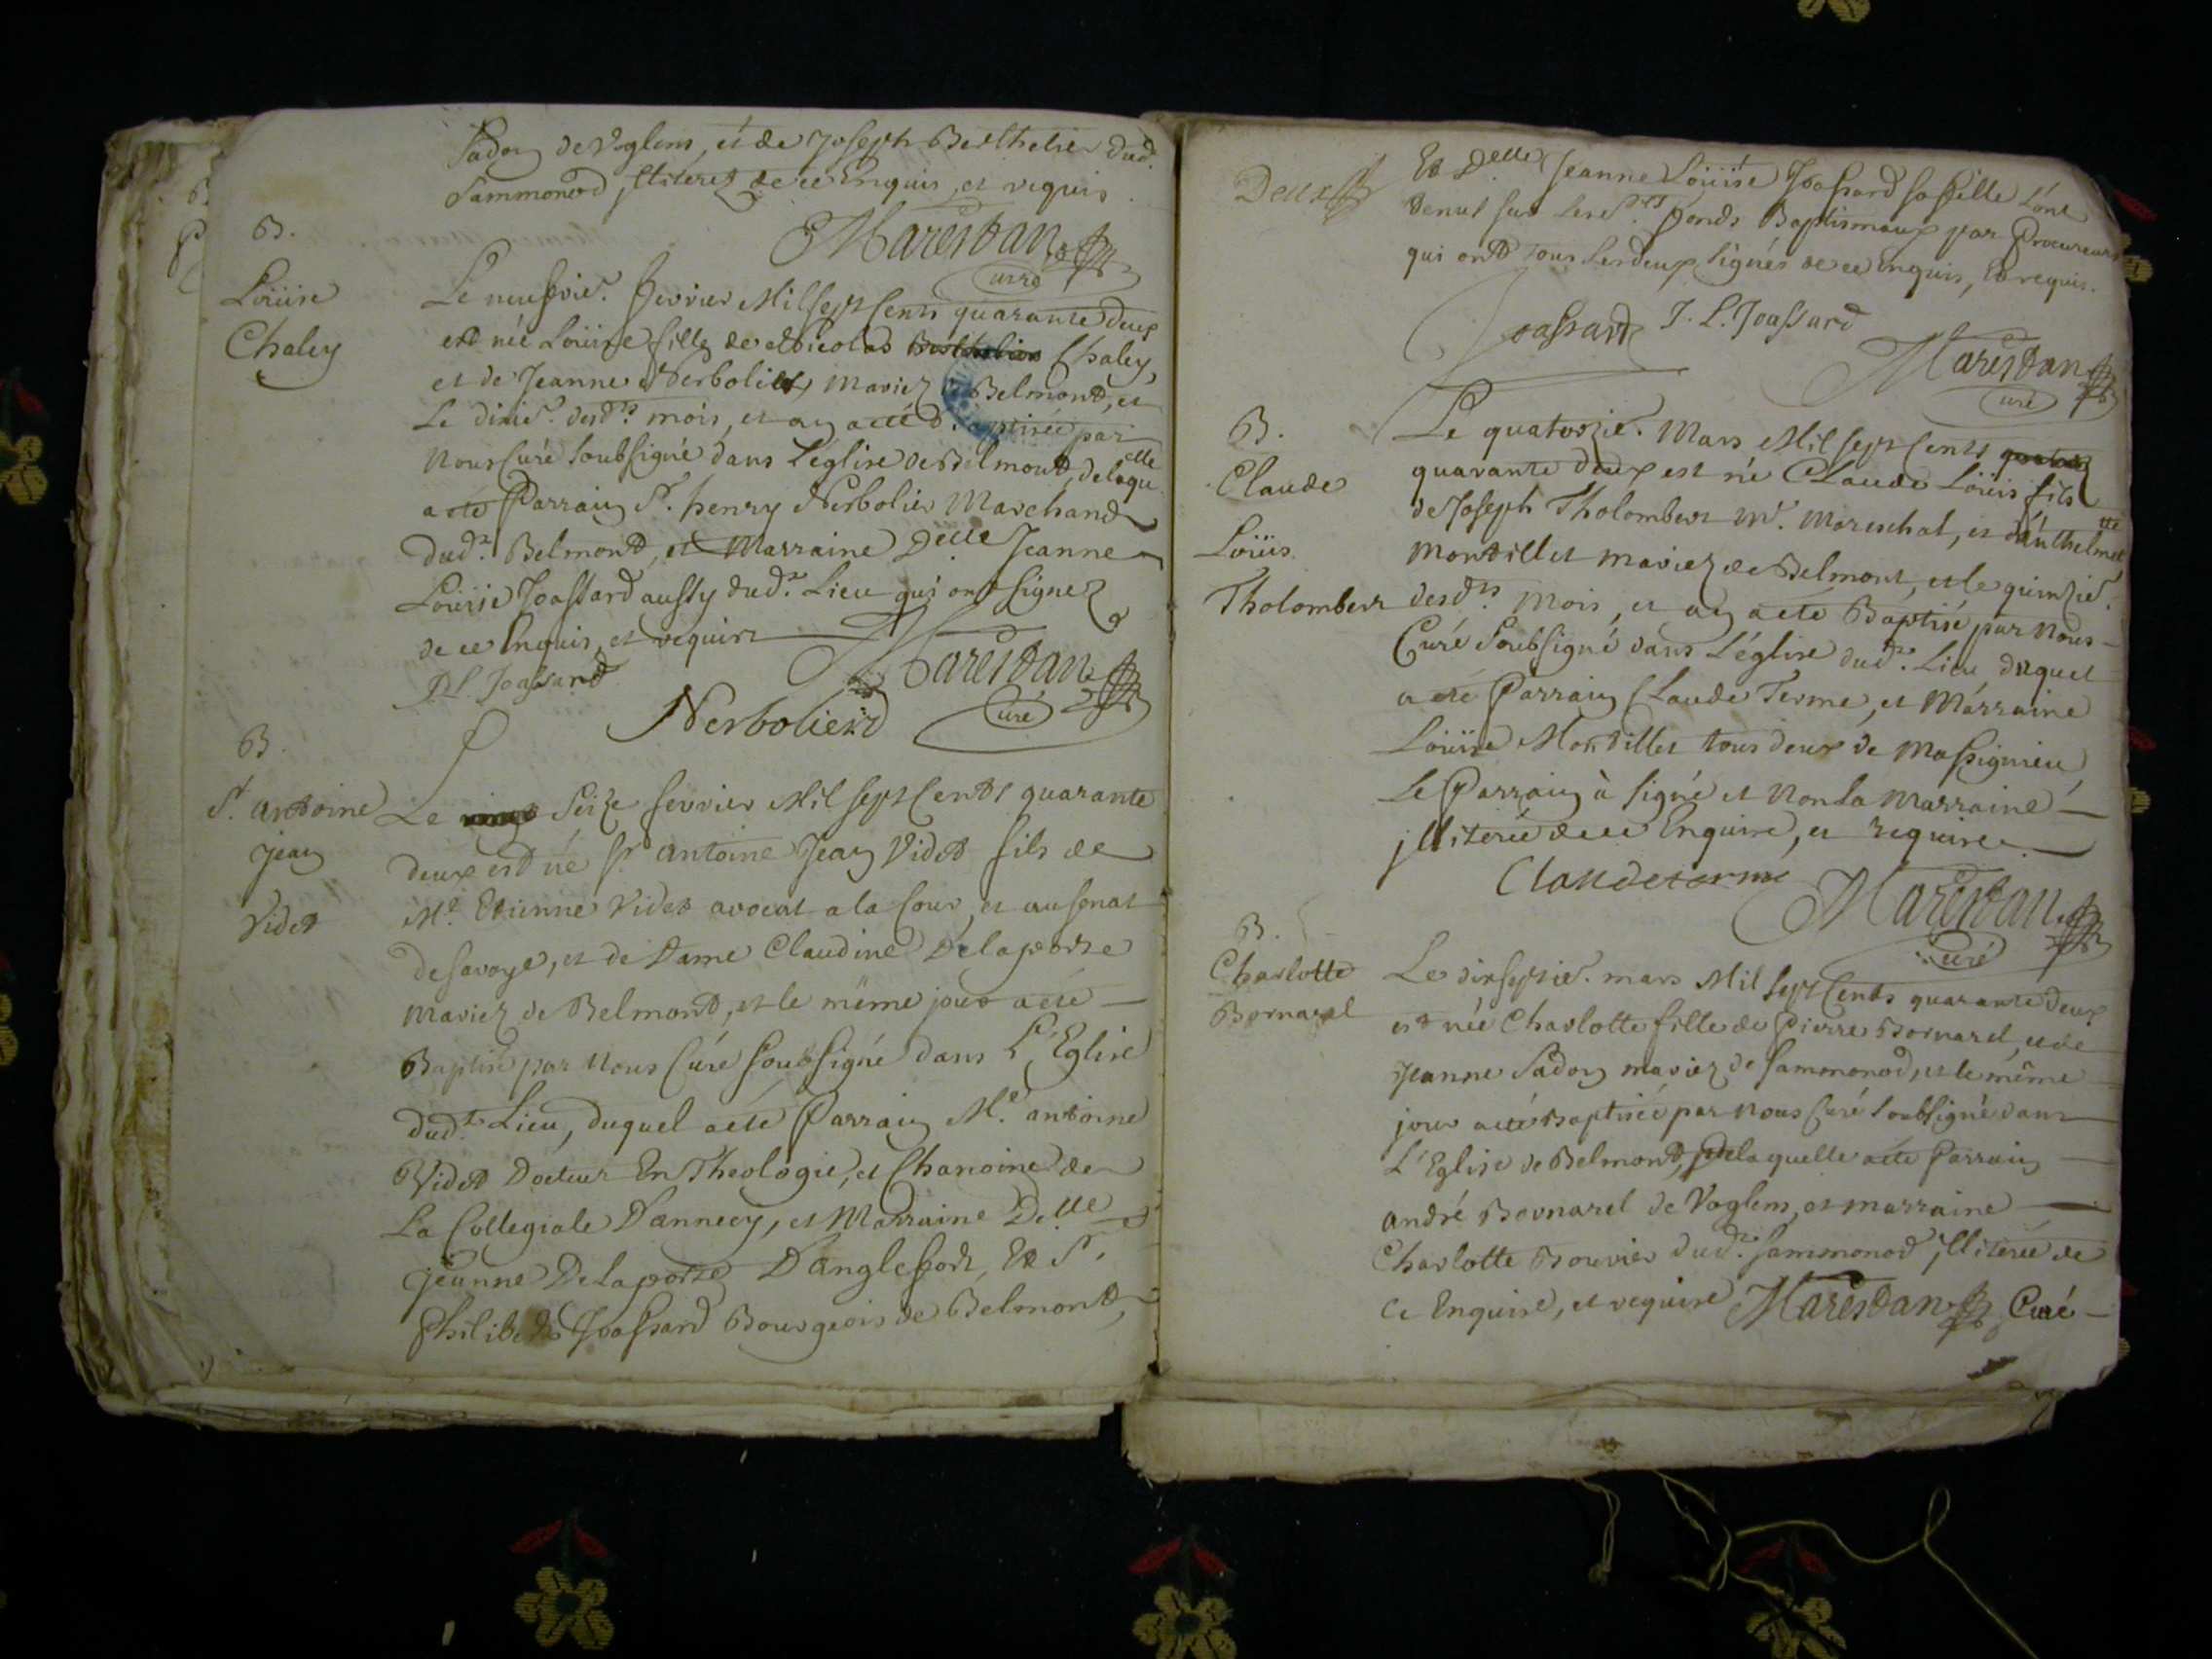 Sadoz de Voglens, et de Joseph Berthelier dud.
Sammonod illiterez de ce Enquis, et requis
Marestan
Curé
B.
Loüise
Chaley
Le neufvie. fevrier Mil sept Cents quarante deux
est née Loüise fille de Nicolas Chaley,
et de Jeanne Nerbolier, mariez Belmont, et
le dixie. desd.ts mois, et an a eté Baptisée par
Nous Curé Soubsigné dans l'église de Belmont, de laquelle
a eté Parrain Sr. henry Nerbolier Marchand
dud.t Belmont, et Marraine Delle Jeanne
Loüise Joassard aussy dud.t Lieu qui ont signez
de ce Enquis, et requis
J. L. Joassard
Marestan
Nerbolierd
Curé
B.
Sr. Antoine
Jean
Videt
Le Seize fevrier Mil sept Cents quarante
deux est né Sr. Antoine Jean Videt fils de
Me. Etienne Videt avocat a la Cour, et au senat
de savoye, et de Dame Claudine Delaporte
mariez de Belmont, et le même jour a eté
Baptisé par Nous Curé Soubsigné dans L'Eglise
dud.t Lieu, duquel a eté Parrain Me. antoine
Videt Docteur En Theologie, et Chanoine de
La Collegiale D'annecy, et Marraine Delle
Jeanne Delaporte D'anglefort, Et Sr.
Philibert Joassard Bourgeois de Belmont,
Deux
Et Delle Jeanne Loüise Joassard sa fille L'ont
tenut sur les d.ts fonds Baptismaux par Procureurs
qui ont tous les deux signés de ce Enquis, Et requis.
Joassard J. L. Joassard
Marestan
Curé
B.
Claude
Loüis
Tholomber
Le quatorzie. Mars Mil sept Cents
quarante deux est né Claude Loüis fils
de Joseph Tholomber Me. Mareschal, et d'Anthelmette
Montillet mariez de Belmont, et le quinzie.
desd.ts mois, et an a eté Baptisé par Nous
Curé Soubsigné dans L'église dud.t Lieu, duquel
a eté Parrain Claude Terme, et Marraine
Loüise Montillet tous deux de Massignieu,
Le Parrain à signé et Non la Marraine
illiterée de ce Enquise, et requise
Claude terme
Marestan
Curé
B.
Charlotte
Bornarel
Le dixseptie. mars Mil sept Cents quarante deux
est née Charlotte fille de Pierre Bornarel, et de
Jeanne Sadoz mariez de Sammonod, et le même
jour a eté Baptisée par Nous Curé Soubsigné dans
L'Eglise de Belmont, de laquelle a eté Parrain
andré Bornarel de Voglens, et marraine
Charlotte Bouvier dud.t Sammonod illiterée de
Ce Enquise, et requise Marestan Curé